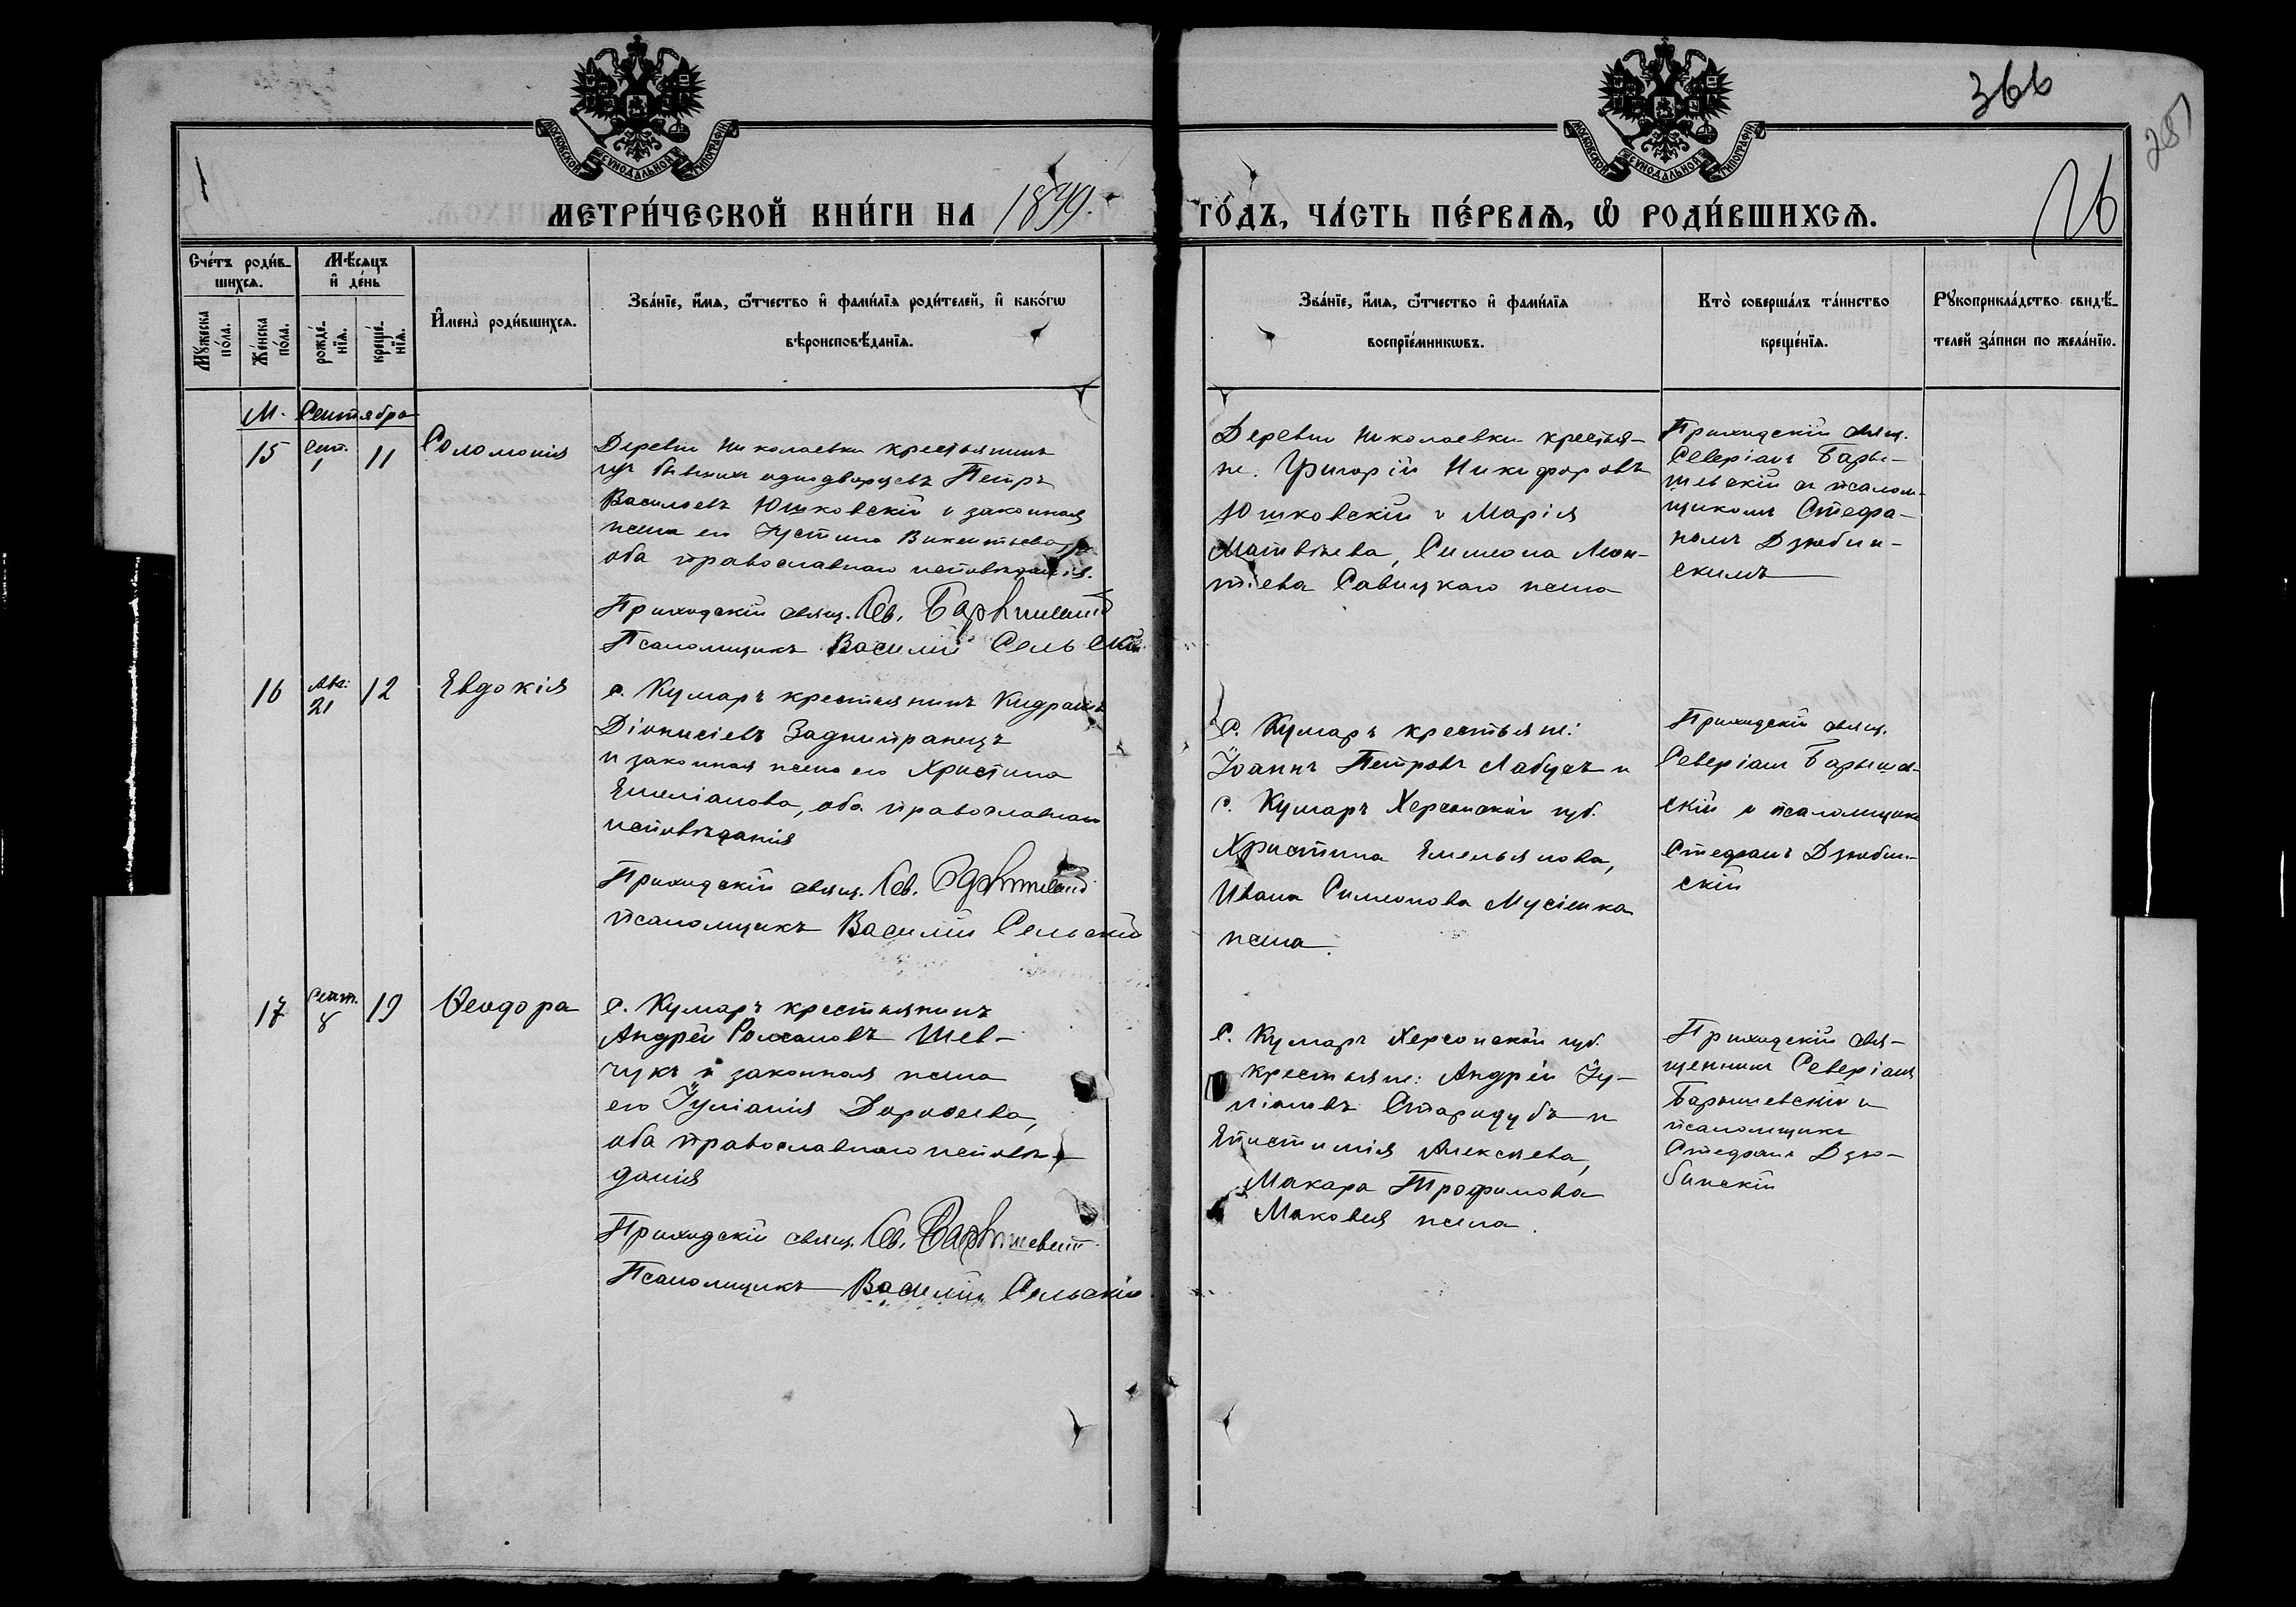 366
287
26
1
МОСКОВСКОЙ СѴНОДАЛЬНОЙ ТИПОГРАФІИ
МОСКОВСКОЙ СѴНОДАЛЬНОЙ ТИПОГРАФІИ
МЕТРИ́ЧЕСКОЙ КНИ́ГИ НА 1899. ГО́ДЪ, ЧА́СТЬ ПЕ́РВАѦ, Ѡ҆ РОДИ́ВШИХСѦ.
Сче́тъ роди́в-
шихсѧ.
Мꙋ́жеска по́ла.
Же́нска по́ла.
Мѣ́сѧцъ
и҆ де́нь
рожде́-
нїѧ.
креще́-
нїѧ.
И҆мена̀ роди́вшихсѧ.
Зва́нїе, и҆́мѧ, ѻ҆́тчество и҆ фами́лїѧ роди́телей, и҆ како́гѡ
вѣроисповѣ́данїѧ.
Зва́нїе, и҆́мѧ, ѻ҆́тчество и҆ фами́лїѧ
воспрїе́мникѡвъ.
Кто̀ соверша́лъ та́инство
креще́нїѧ.
Рꙋкоприкла́дство свидѣ́-
телей за́писи по жела́нїю.
М. Сентябрь
15
Сент.
1
11
Соломонія
Деревни Николаевки крестьянинъ
изъ бывшихъ однодворцевъ Петръ
Васильевъ Юшковскій и законная
жена его Іустина Викентьева,
оба православнаго исповѣданія.
Приходскій свящ. Св. Барышевскій
Псаломщикъ Василій Сельскій
Деревни Николаевки крестья-
не: Григорій Никифоровъ
Юшковскій и Марія
Матвѣева, Симеона Леон-
тіева Савицкаго жена
Приходскій свящ.
Северіанъ Бары-
шевскій съ псалом-
щикомъ Стефа-
номъ Дзюбин-
скимъ
16
Авг.
21
12
Евдокія
с. Кумаръ крестьянинъ Кидратъ
Діонисіевъ Заднипранецъ
и законная жена его Христина
Емеліанова, оба православнаго
исповѣданія
Приходскій свящ. Св. Барышевскій
псаломщикъ Василій Сельскій
С. Кумаръ крестьяне:
Іоаннъ Петровъ Лабузъ и
с. Кумаръ Херсонской губ.
Христина Емельянова,
Ивана Симеонова Мусіенка
жена.
Приходскій свящ.
Северіанъ Барышев-
скій и псаломщикъ
Стефанъ Дзюбин-
скій
17
Сент.
8
19
Ѳеодора
с. Кумаръ крестьянинъ
Андрей Романовъ Шев-
чукъ и законная жена
его Іуліанія Дороѳеева,
оба православнаго исповѣ-
данія
Приходскій свящ. Св. Барышевскій
Псаломщикъ Василій Сельскій
С. Кумаръ Херсонской губ.
крестьяне: Андрей Іу-
ліановъ Стародубъ и
Епистимія Алексѣева,
Макара Трофимова
Маковея жена.
Приходскій свя-
щенникъ Северіанъ
Барышевскій и
псаломщикъ
Стефанъ Дзю-
бинскій